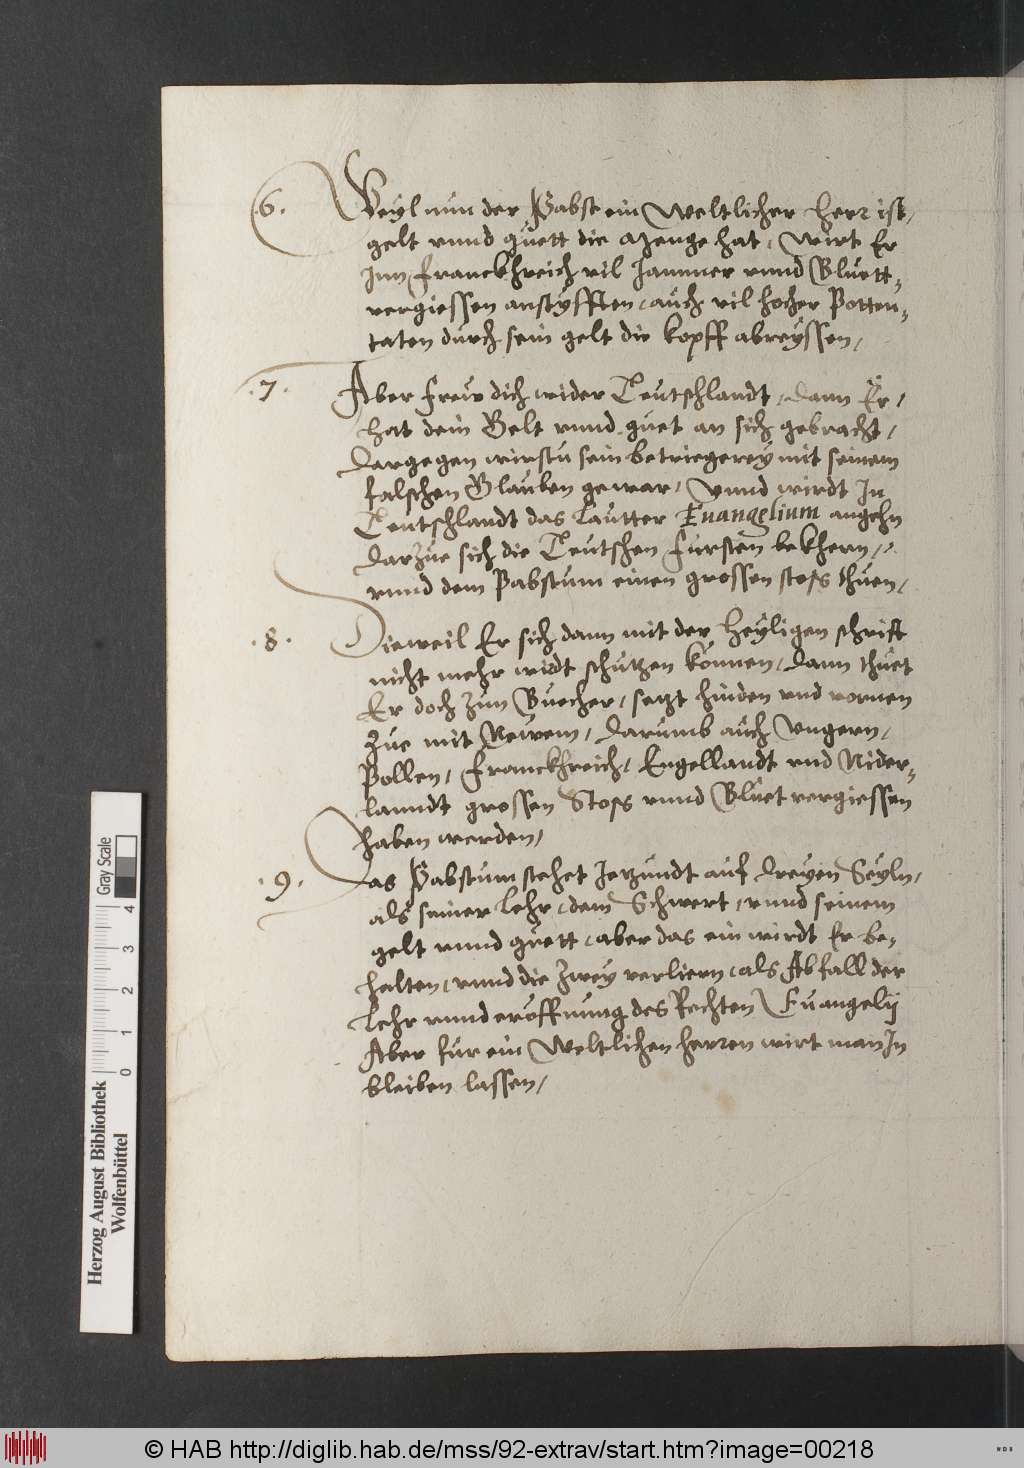 .6. Weyl nun der Pabst ein Weltlicher herr ist,
gelt vnnd guett die Menge hat, wirt Er
Jnn Franckhreich vil Jammer vnnd Bluett-
vergiessen anstyfften, auch vil hocher Potten-
taten durch sein gelt die kopff abreyssen,
.7. Aber frew dich wider Teutschlandt, dann Er,
hat dein Gelt vnnd guet an sich gebracht,
dargegen wirstu sein betriegerey mit seinem
falschen Glauben gewar, Vnnd wirdt Jn
Teutschlandt das Lautter Euangelium angehn
darzue sich die Teutschen fursten bekhern,
vnnd dem Pabstum einen grossen stoss thuen,
.8. Dieweil Er sich dann mit der Heyligen schrift
nicht mehr widt schutzen können, dann thuet
Er doch zun Buecher, setzt hinden vnd vornen
zue mit Newem, darumb auch Vngern,
Pollen, Franckhreich, Engellandt vnd Nider-
lanndt grossen Stoss vnnd Bluet vergiessen
haben werden,
.9. Das Pabstum stehet Jetzundt auf dreyen Seyln,
als seiner Lehr, dem Schwert, vnnd seinem
gelt vnnd guett, aber das ein wirdt Er be-
halten, vnnd die zwey verliern, als Abfall der
Lehr vnnd eroffnung des Rechten Euangelij
Aber für ein Weltlichen herren wirt man Jn
bleiben lassen,
Herzog August Bibliothek
Wolfenbüttel
0 1 2 3 4
Gray Scale
© HAB http://diglib.hab.de/mss/92-extrav/start.htm?image=00218